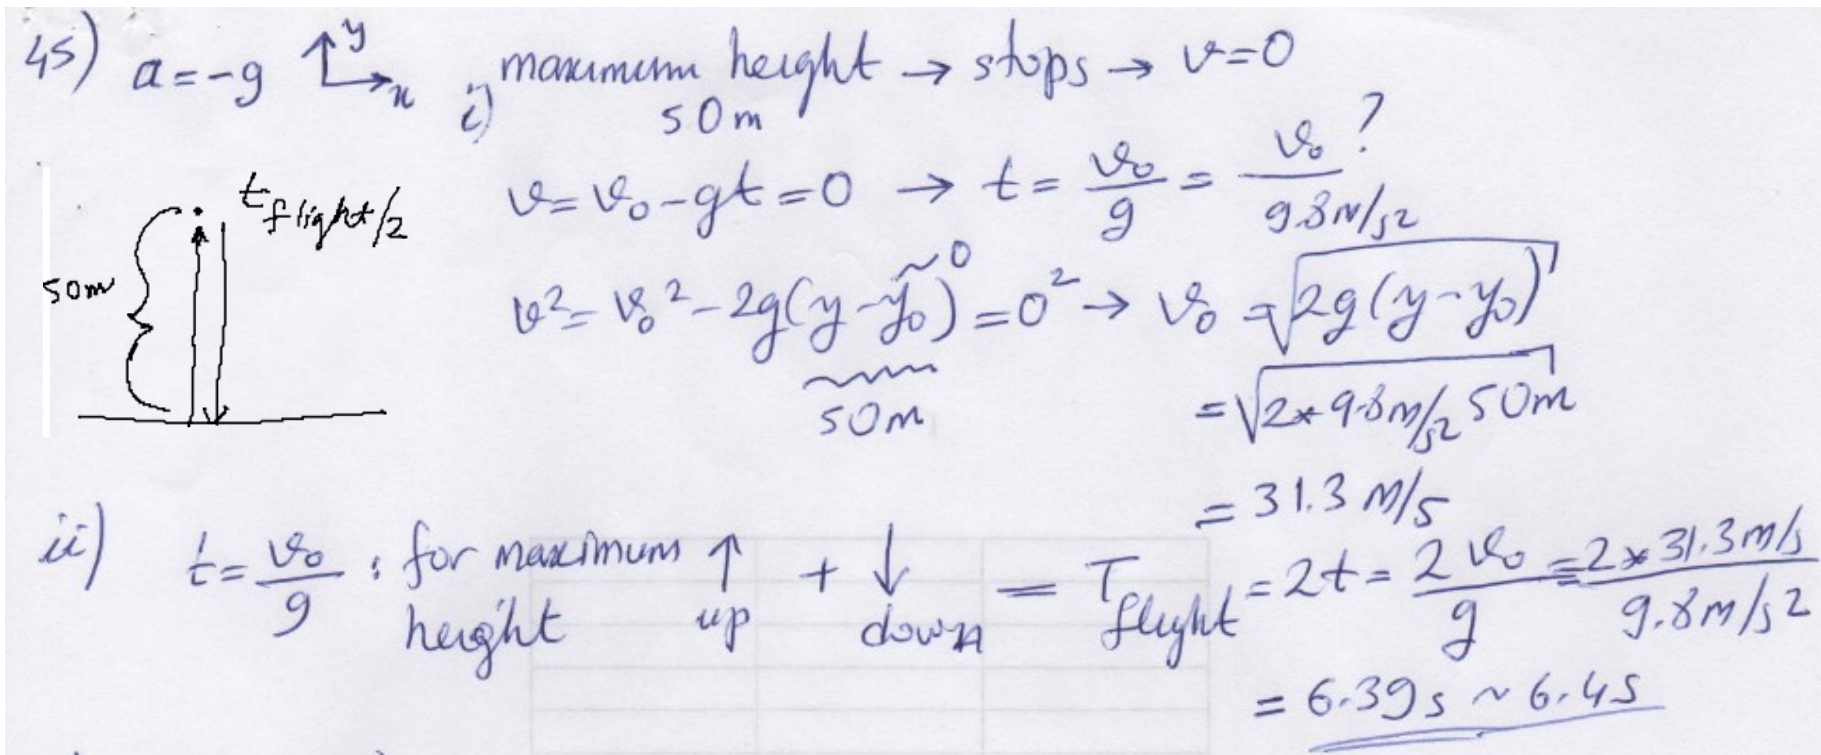 45) a = -g y x i) maximum height → stops → v = 0
50m
v = v₀ - gt = 0 → t = v₀/g = v₀?/9.8m/s2
t flight/2
50m
v² = v₀² - 2g(y - y₀) = 0² → v₀ = √2g(y - y₀)
0
50m
= √2*9.8m/s2 50m
= 31.3 m/s
ii) t = v₀/g : for maximum height ↑ up + ↓ down = T flight = 2t = 2v₀/g = 2*31.3m/s/9.8m/s2
= 6.39s ~ 6.4s